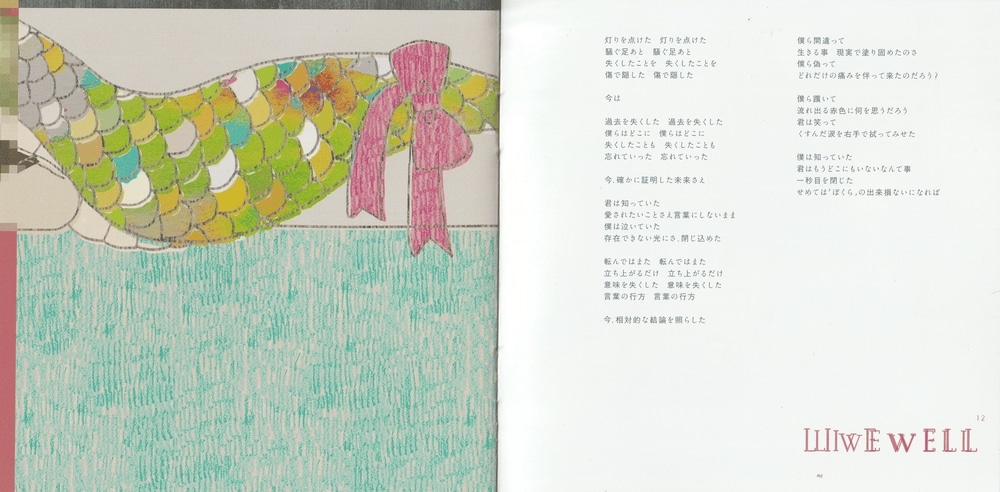 灯りを点けた　灯りを点けた
騒ぐ足あと　騒ぐ足あと
失くしたことを　失くしたことを
傷で隠した　傷で隠した
今は
過去を失くした　過去を失くした
僕らはどこに　僕らはどこに
失くしたことも　失くしたことも
忘れていった　忘れていった
今、確かに証明した未来さえ
君は知っていた
愛されたいことさえ言葉にしないまま
僕は泣いていた
存在できない光にさ、閉じ込めた
転んではまた　転んではまた
立ち上がるだけ　立ち上がるだけ
意味を失くした　意味を失くした
言葉の行方　言葉の行方
今、相対的な結論を照らした
僕ら間違って
生きる事　現実で塗り固めたのさ
僕ら偽って
どれだけの痛みを伴って来たのだろう?
僕ら躓いて
流れ出る赤色に何を思うだろう
君は笑って
くすんだ涙を右手で拭ってみせた
僕は知っていた
君はもうどこにもいないなんて事
一秒目を閉じた
せめては「ぼくら」の出来損ないになれば
12